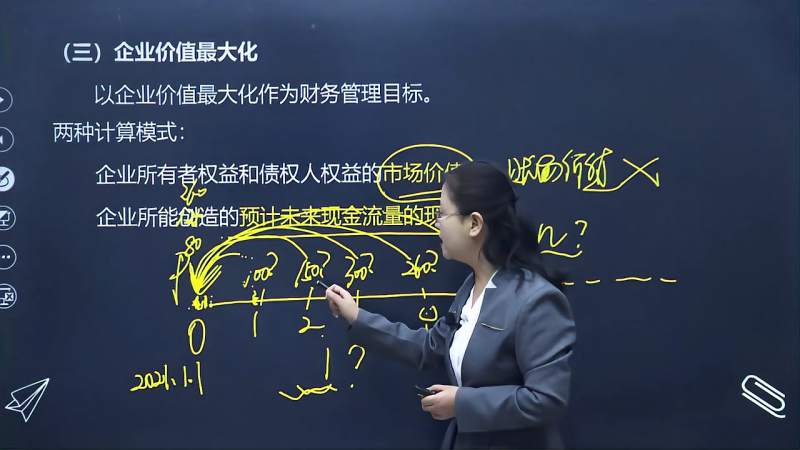 （三）企业价值最大化
以企业价值最大化作为财务管理目标。
两种计算模式：
企业所有者权益和债权人权益的市场价值
企业所能创造的预计未来现金流量的现
n?
80 100? 150? 300? 260?
0 1 2
2021.1.1
i?